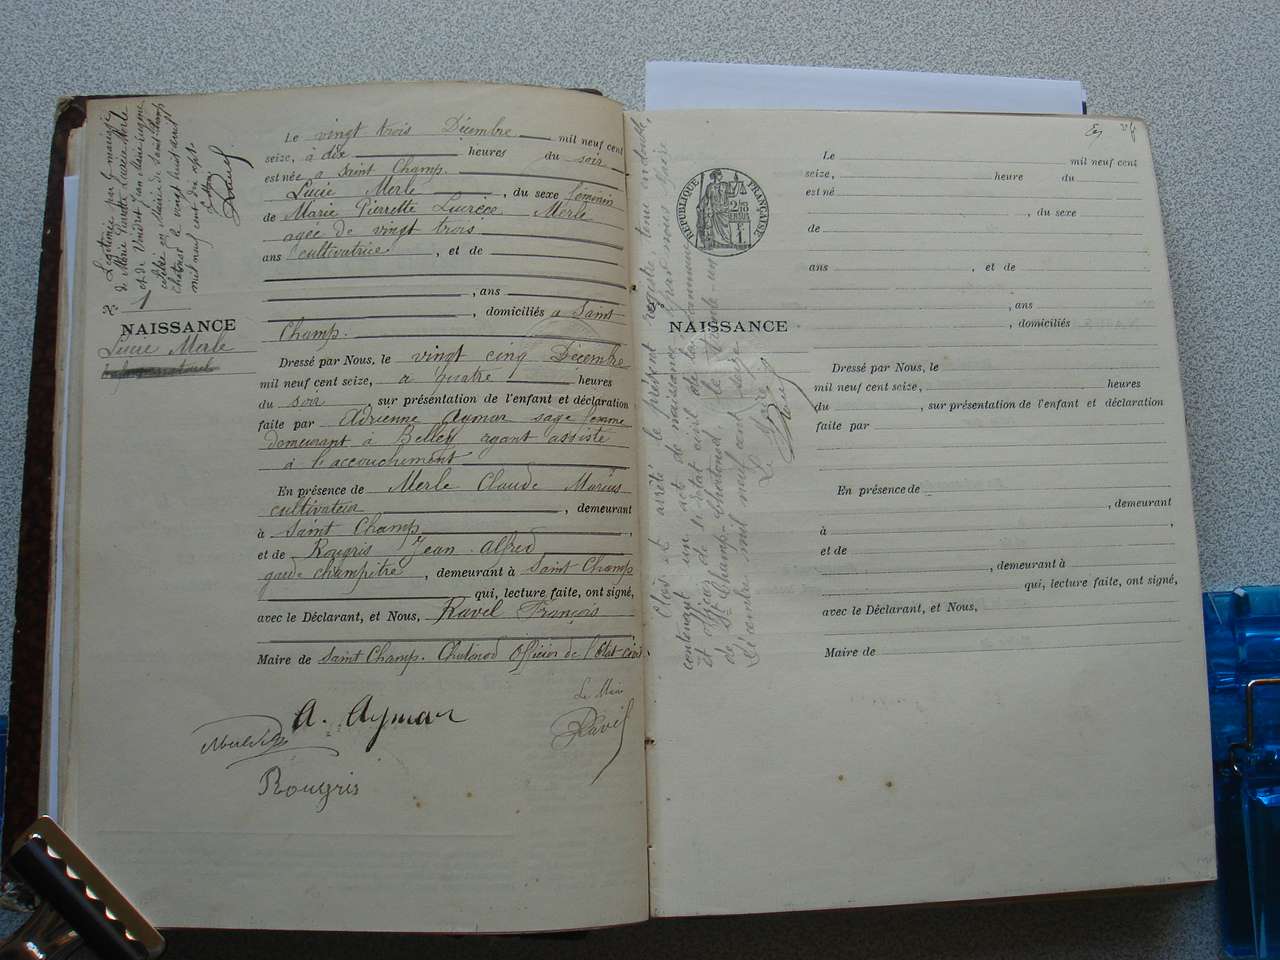 Légitimée par le mariage
de Marie Pierrette Lucrèce Merle
et de Jean Marie Eugène
célébré en Mairie de Saint Champ
Chatonod le vingt huit avril
mil neuf cent dix sept
Le Maire
Ravel
N° 1
NAISSANCE
Lucie Merle
Le vingt trois Décembre mil neuf cent
seize, à dix heures du soir
est née à Saint Champ
Lucie Merle , du sexe féminin
de Marie Pierrette Lucrèce Merle
agée de vingt trois
ans cultivatrice , et de
, ans
, domiciliés à Saint
Champ.
Dressé par Nous, le vingt cinq Décembre
mil neuf cent seize, à quatre heures
du soir , sur présentation de l'enfant et déclaration
faite par Adrienne Aymar sage femme
demeurant à Belley ayant assisté
à l'accouchement
En présence de Merle Claude Marius
cultivateur , demeurant
à Saint Champ ,
et de Rougris Jean Alfred
garde champêtre , demeurant à Saint Champ
qui, lecture faite, ont signé,
avec le Déclarant, et Nous, Ravel François
Maire de Saint Champ Chatonod Officier de l'état civil
Le Maire
A. Aymar
Ravel
Rougris
Clos et arrêté le présent registre, tenu en double,
contenant un acte de naissance, par nous Maire
et officier de l'état civil de la commune
de St Champ-Chatonod, le trente-un
Décembre mil neuf cent seize
Le Maire
Ravel
RÉPUBLIQUE FRANÇAISE
N°
NAISSANCE
Le mil neuf cent
seize, heure du
est né
, du sexe
de
ans , et de
, ans
, domiciliés
Dressé par Nous, le
mil neuf cent seize, heures
du , sur présentation de l'enfant et déclaration
faite par
En présence de
, demeurant
à ,
et de
, demeurant à
qui, lecture faite, ont signé,
avec le Déclarant, et Nous,
Maire de